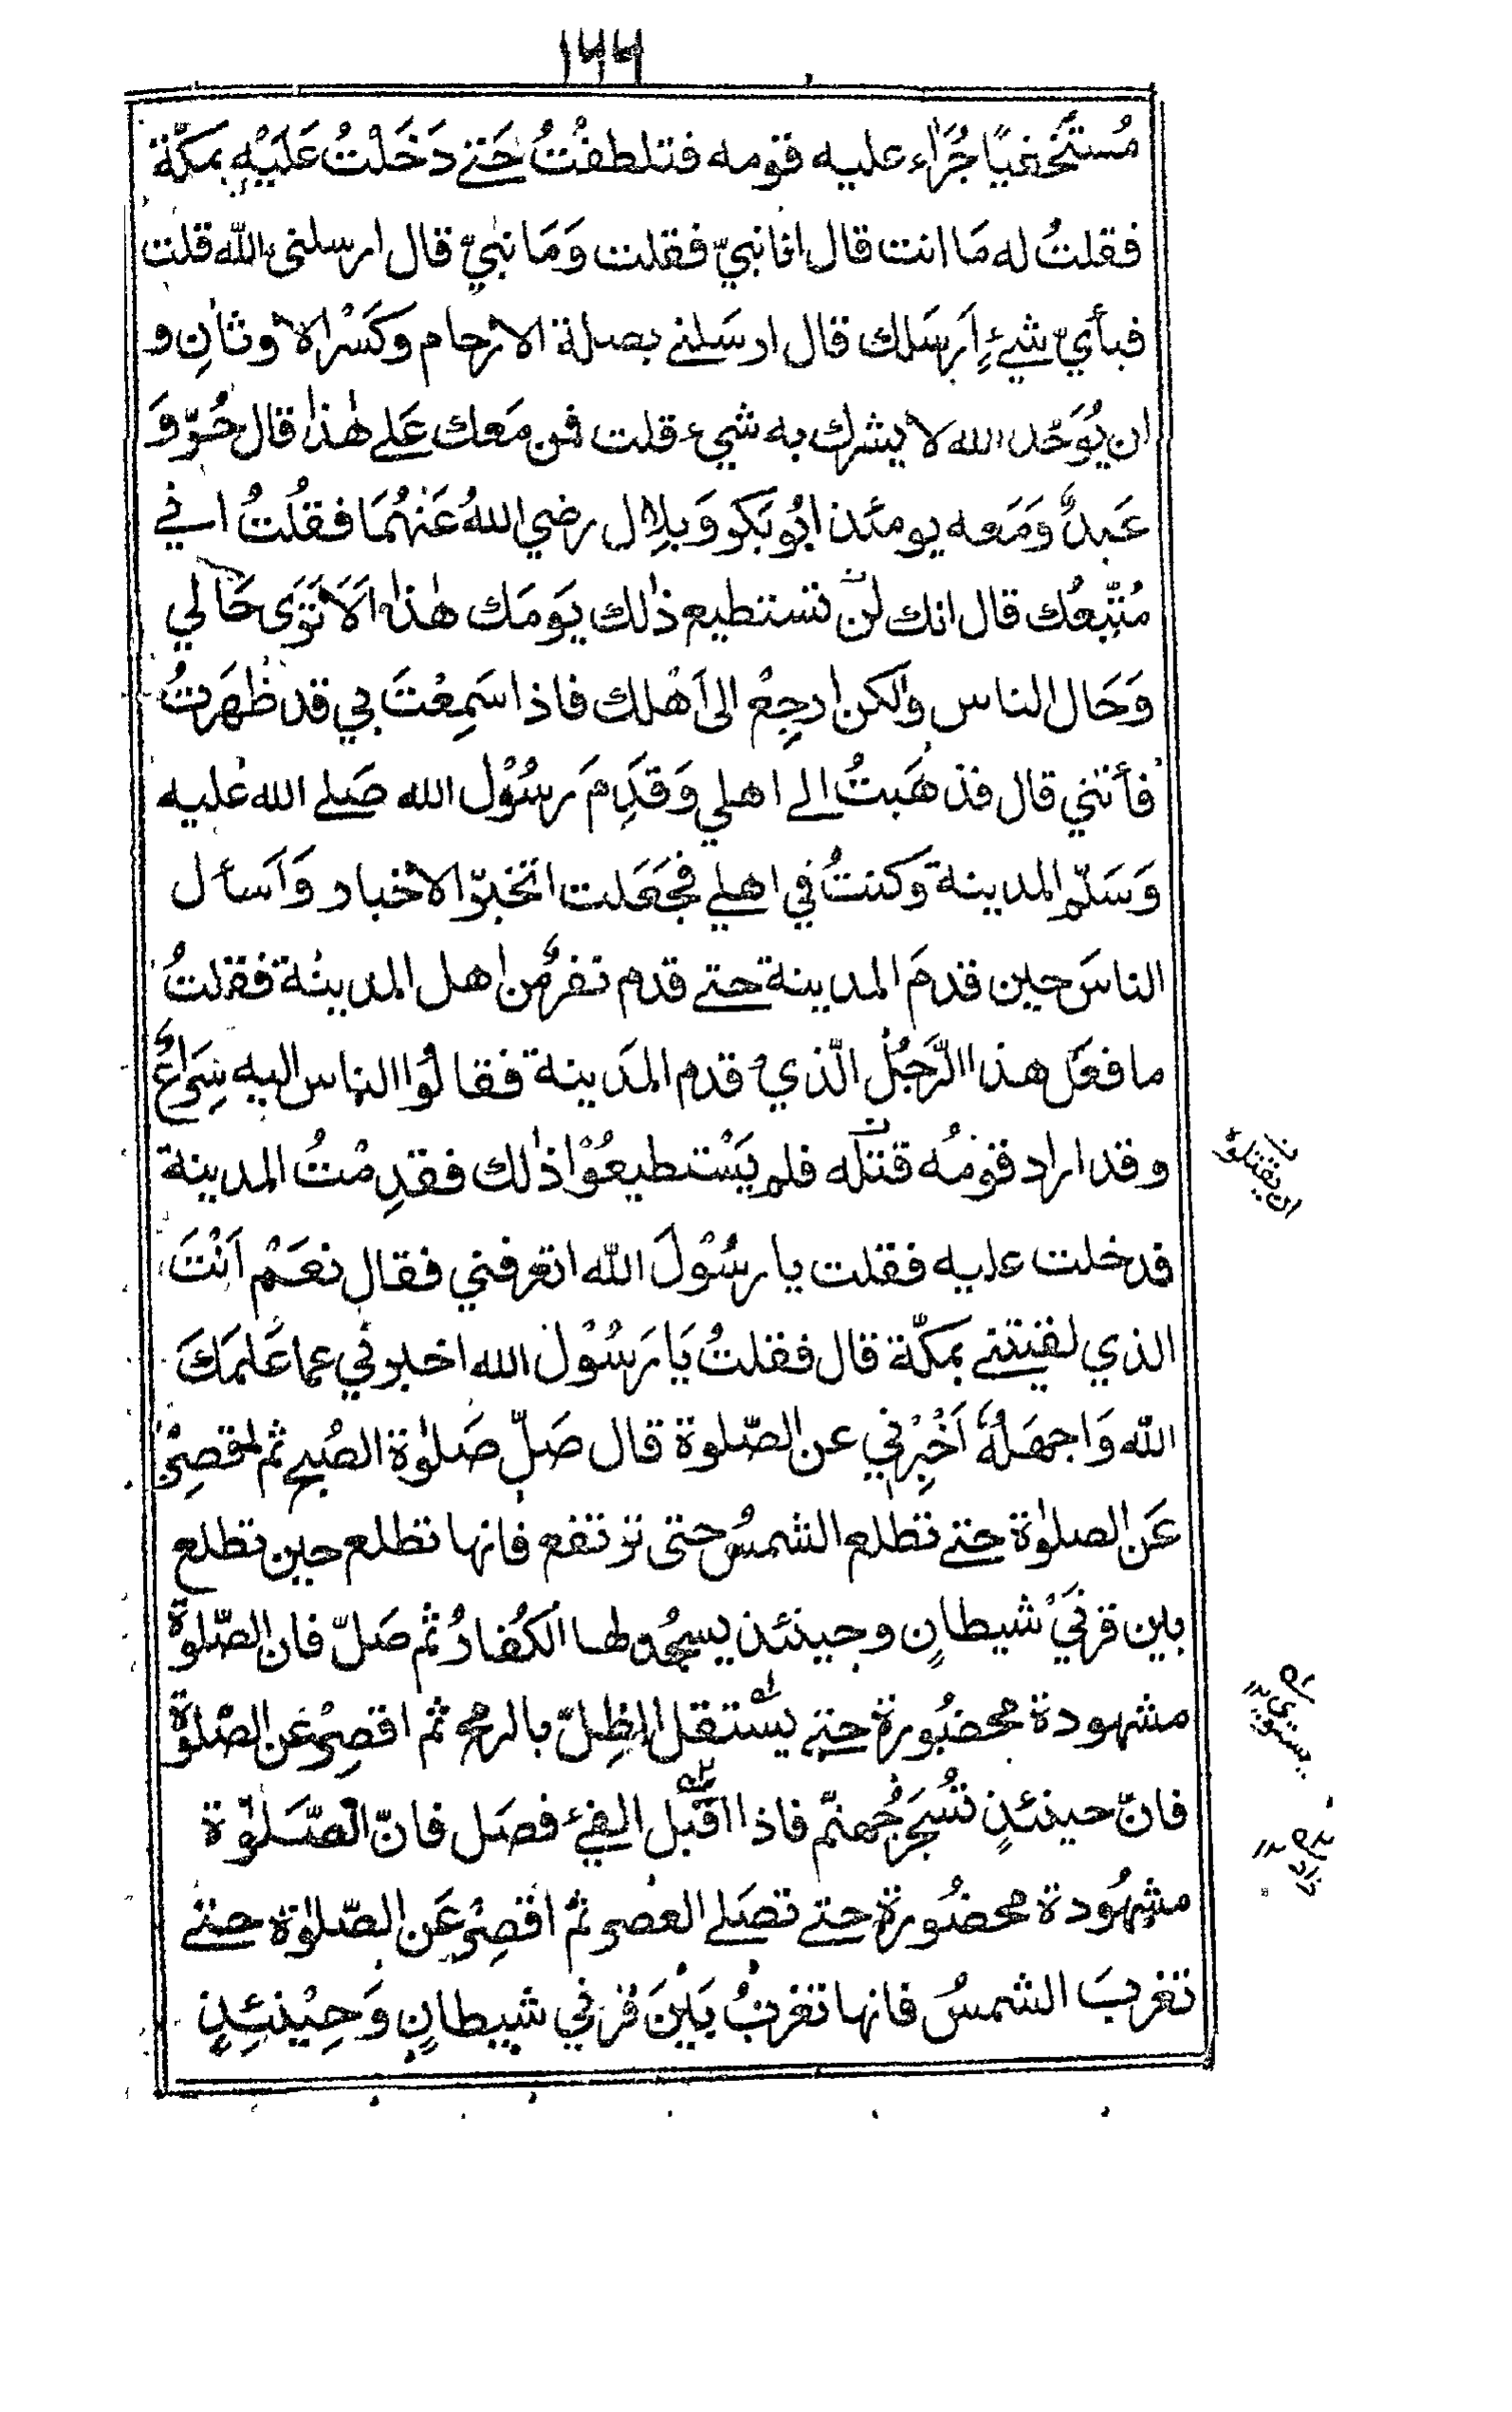 ١٦٦
مُستَخفيًا جُرَاٰء عليه قومه فتلطفتُ حَتے دَخَلْتُ عَلَيْهِ بمكّة
فقلتُ له مَا انت قال انا نبيّ فقلت وَمَا نبيّ قال ارسلنى الله قلت
فبأيّ شيءٍ اَرسَلك قال ارسَلنے بصلة الارحام وَكَسْر الاوثانِ و
ان يُوَحّد الله لا يشرك به شيء قلت فمن مَعك عَلے هٰذا قال حُرّ وَ
عَبدٌ وَمَعه يومئذ ابُو بَكر وَبلِال رضي اللهُ عَنْهُمَا فقُلتُ اني
مُتّبِعُك قال انك لن تستطيع ذٰلك يَومَك هٰذا اَلَا تَرَى حَالي
وَحَال الناس ولٰكن ارجِعْ الى اَهْلك فاذا سَمِعْتَ بي قد ظَهَرتُ
فأتني قال فذهَبتُ الے اهلي وَقَدِمَ رسُوْل الله صَلے الله عليه
وَسَلّم المدينة وَكنتُ في اهلے فجَعَلت اتخبرّ الاخبار وَاَسأل
الناسَ حين قدمَ المدينة حتے قدم نفرٌ من اهل المدينة فقلتُ
ما فعَل هذا الرَّجُلُ الّذي قدم المَدينة فقالُوا الناس اليه سِرَاعٌ
و قد اراد قومُه قتله فلم يَسْتطيعُوْا ذٰلك فقدِمْتُ المدينة
فدخلت عليه فقلت يا رسُوْلَ الله اتعرفني فقال نعَمْ اَنْتَ
الذي لقيتنے بمكّة قال فقلتُ يَا رَسُوْل الله اخبرني عما عَلمَكَ
الله وَاجهَلُهُ اَخْبِرْني عن الصّلوة قال صَلّ صَلوٰة الصُبح ثم اقصِرْ
عَن الصلوٰة حتے تطلع الشمسُ حتى ترتفع فانها تطلع حين تطلع
بين قرنَيْ شيطانٍ وحينئذ يسجُد لها الكُفارُ ثم صَلّ فان الصّلوة
مشهودة محضُورة حتے يستقل الظِلّ بالرمح ثم اقصِرْ عَن الصّلوة
فانّ حينئذٍ تُسجَرُ جُهنّم فاذا اقبَل الفيء فصَل فانّ الصَّلوٰة
مشهُودة محضُورة حتے تصَلے العصر ثم اقصِرْ عَن الصّلوٰة حتے
تغربَ الشمسُ فانها تغربُ بَيْنَ قرني شيطانٍ وَحِيْنئِذٍ
ان يقتلوه
يستوي
زاد